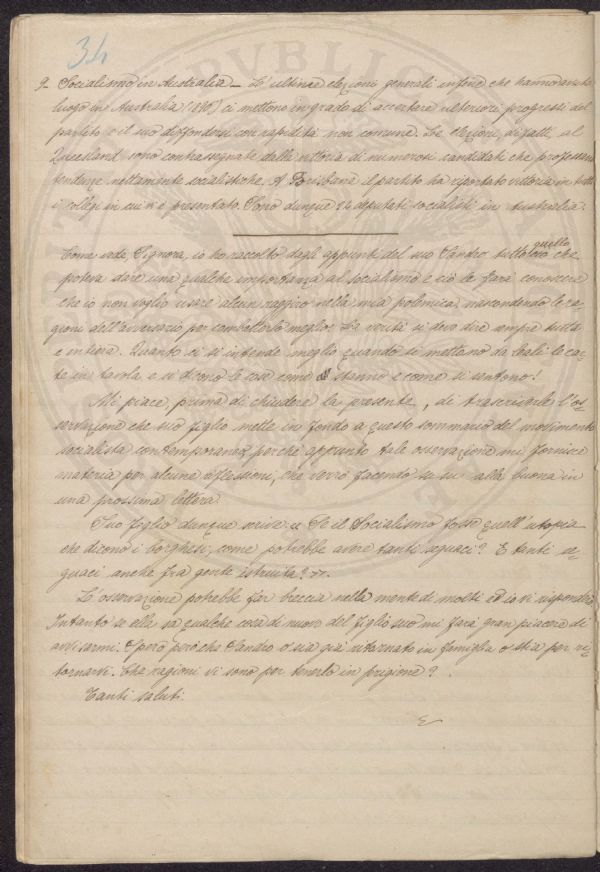 34
9- Socialismo in Australia – Le ultime elezioni generali infine che hanno avuto
luogo in Australia (189 ) ci mettono in grado di accertare ulteriori progressi del
partito e il suo diffondersi con rapidità non comune. Le elezioni, difatti, al
Queesland sono contrassegnate dalla vittoria di numerosi candidati che professano
tendenze nettamente socialistiche. A Brisbane il partito ha riportato vittoria in tutti
i collegi in cui si è presentato. Sono dunque 24 deputati socialisti in Australia.
Come vede, Signora, io ho raccolto dagli appunti del suo Sandro tutto quello che
poteva dare una qualche importanza al socialismo e ciò le farà conoscere
che io non voglio usare alcun raggiro nella mia polemica, nascondendo le ra-
gioni dell'avversario per combatterlo meglio. La verità si deve dire sempre tutta
e intiera. Quanto ci si intende meglio quando si mettono da leali le car-
te in tavola e si dicono le cose come stanno e come si sentono!
Mi piace, prima di chiudere la presente, di trascriverle l'os-
servazione che suo figlio mette in fondo a questo sommario del movimento
socialista contemporaneo, perché appunto tale osservazione mi fornisce
materia per alcune riflessioni, che verrò facendo su su alla buona in
una prossima lettera.
Suo figlio dunque scrive: « Se il Socialismo fosse quell'utopia
che dicono i borghesi, come potrebbe avere tanti seguaci? E tanti se-
guaci anche fra gente istruita? ».
La osservazione potrebbe far breccia nella mente di molti ed io vi risponderò.
Intanto se ella sa qualche cosa di nuovo del figlio suo mi farà gran piacere di
avvisarmi. Spero però che Sandro o sia già ritornato in famiglia o stia per ri-
tornarvi. Che ragioni vi sono per tenerlo in prigione?
Tanti saluti.